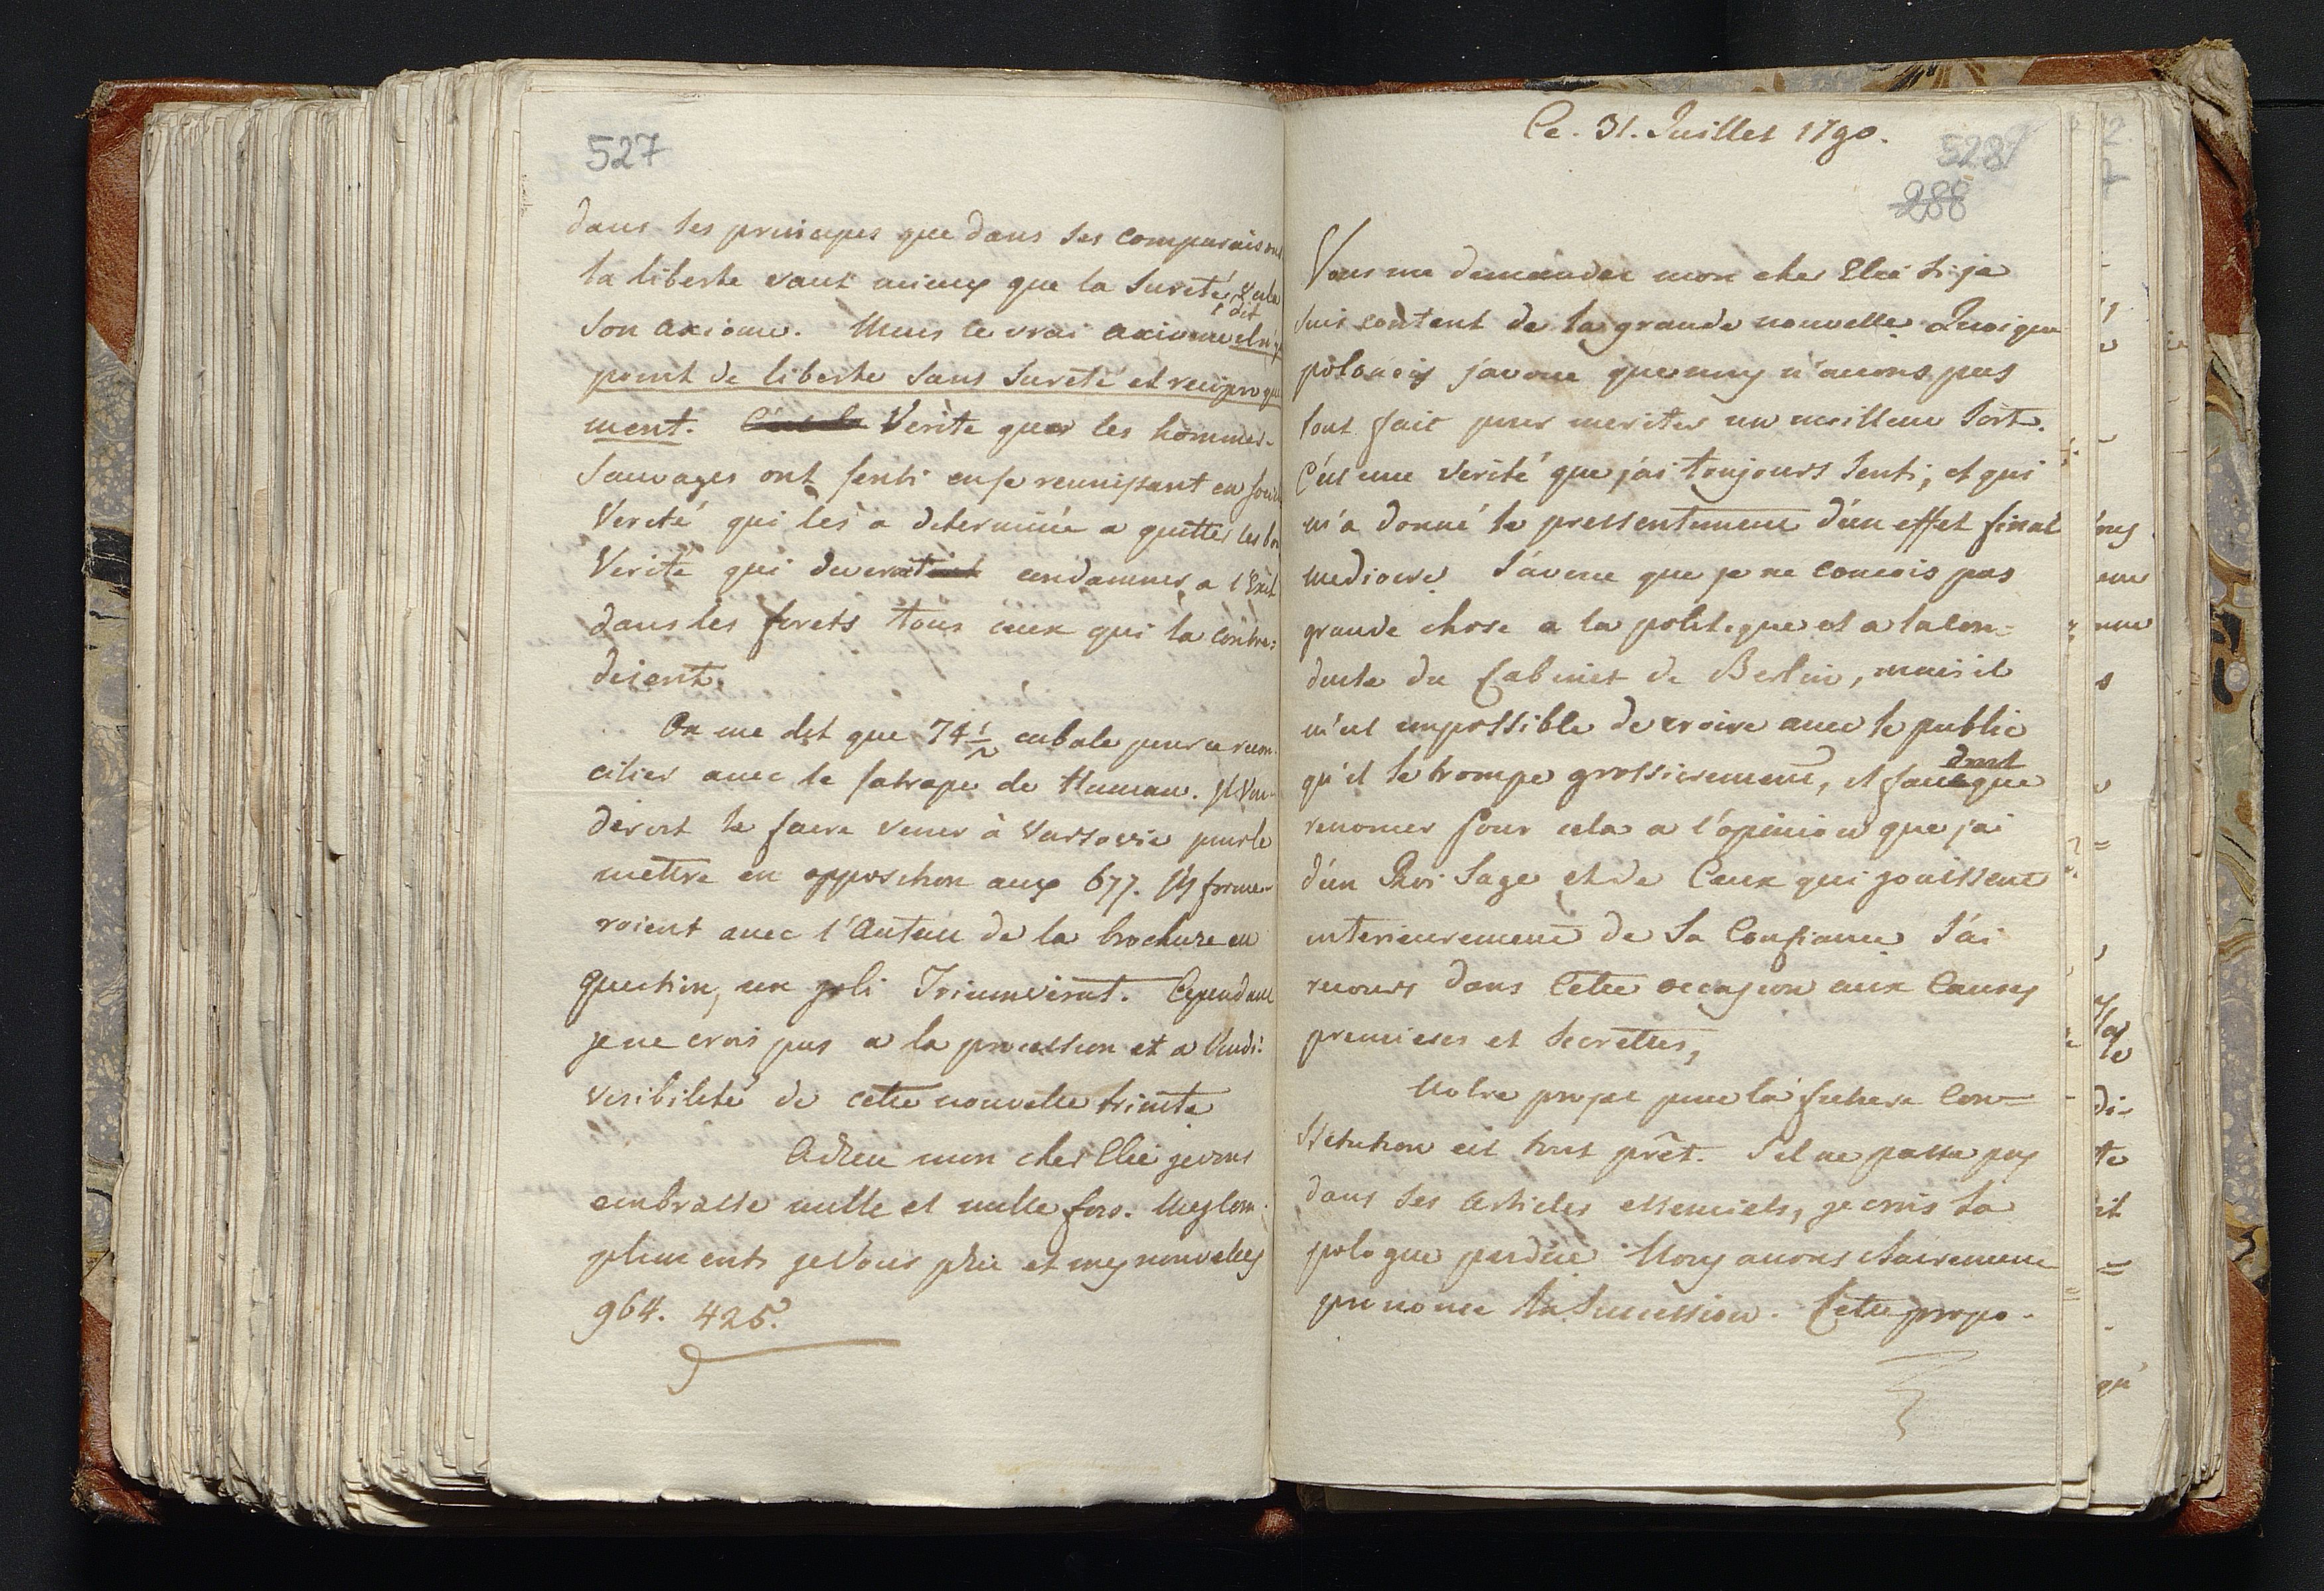 527
dans ses principes que dans ses comparaisons
la liberte vaut mieux que la sureté, voila
dit
son axiome. Mais le vrai axiome el n'y
point de liberte sans sureté et reciproque
ment. Verite que les hommes
sauvages ont senti en se reunissant en
Verité qui les a determinée a quitter les
Verité qui deveroit condamner a l'Exil
dans les forets tous ceux qui la contre-
disent.
On me dit que 74 1/2 cabale pour se recon-
cilier avec le satrape de Human. Il vou-
deroit le faire venir à Varsovie pour le
mettre en opposition aux 677. Ils forme-
roient avec l'Auteur de la brochure en
question, un joli Triumvirat. Cependant
je ne crois pas a la procession et a l'indi-
visibileté de cette nouvelle trinite
Adieu mon cher Elie je vous
embrasse mille et mille fois. Mes com-
pliments je vous prie et mes nouvelles
964. 425.
Ce. 31. Juillet 1790.
528
288
Vous me demandez mon cher Elie si je
suis content de la grande nouvelle. Quoique
polonois j'avoue que nous n'avons pas
tout fait pour meriter un meilleur sort.
C'est une verité que j'ai toujours senti, et qui
m'a donné le pressentiment d'un effet final
mediocre. J'avoue que je ne concois pas
grande chose a la politique et a la con-
duite du Cabinet de Berlin, mais il
m'est impossible de croire avec le public
qu'il se trompe grossierement, et
dont
que
renoncer pour cela a l'opinion que j'ai
d'un Roi Sage et de Ceux qui jouissent
interieurement de sa Confiance J'ai
recours dans Cette occasion aux Causes
premieres et secrettes,
Notre projet pour la future Con-
stitution est tout prêt. S'il ne passe pas
dans ses Articles essenciels, je crois la
pologne perdue. Nous avons clairement
prenoncé la Succession. Cette propo-